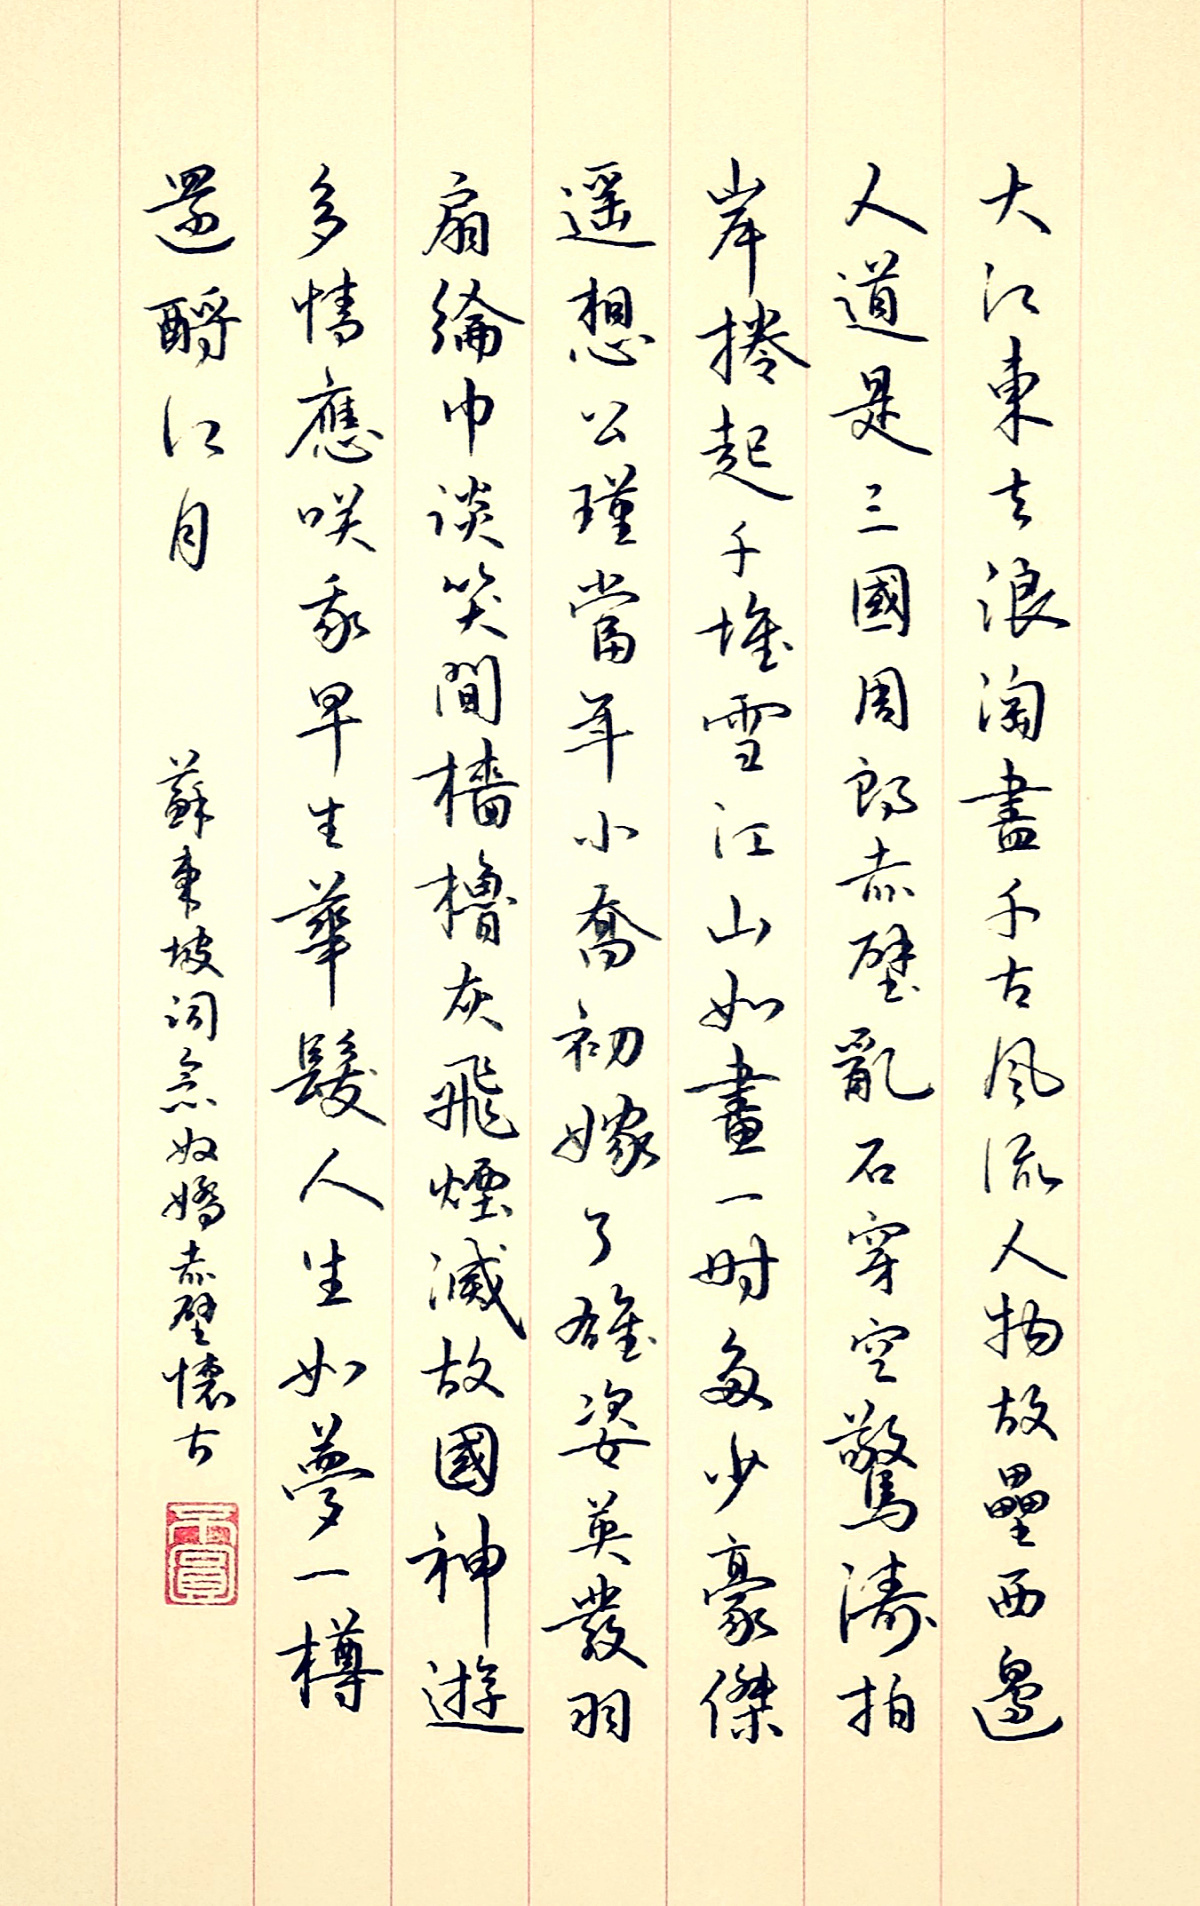 大江東去浪淘盡千古風流人物故壘西邊
人道是三國周郎赤壁亂石穿空驚濤拍
岸捲起千堆雪江山如畫一時多少豪傑
遥想公瑾當年小喬初嫁了雄姿英發羽
扇綸巾談笑間檣櫓灰飛煙滅故國神遊
多情應咲我早生華髮人生如夢一樽
還酹江月
蘇東坡詞念奴嬌赤壁懷古